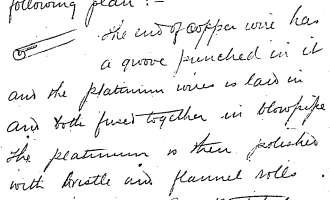 following plan :-
The end of copper wire has
a groove punched in it
and the platinum wires is laid in
and both fused together in blowpipe
The platinum is then polished
with bristle and flannel rolls.